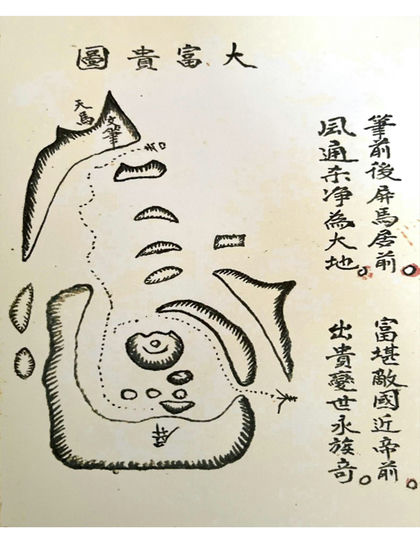 大富貴圖
筆前後屏馬居前。
風通未净為大地。
富堪敵國近帝前。
出貴變世永族奇。
天馬
文筆
水口
屏